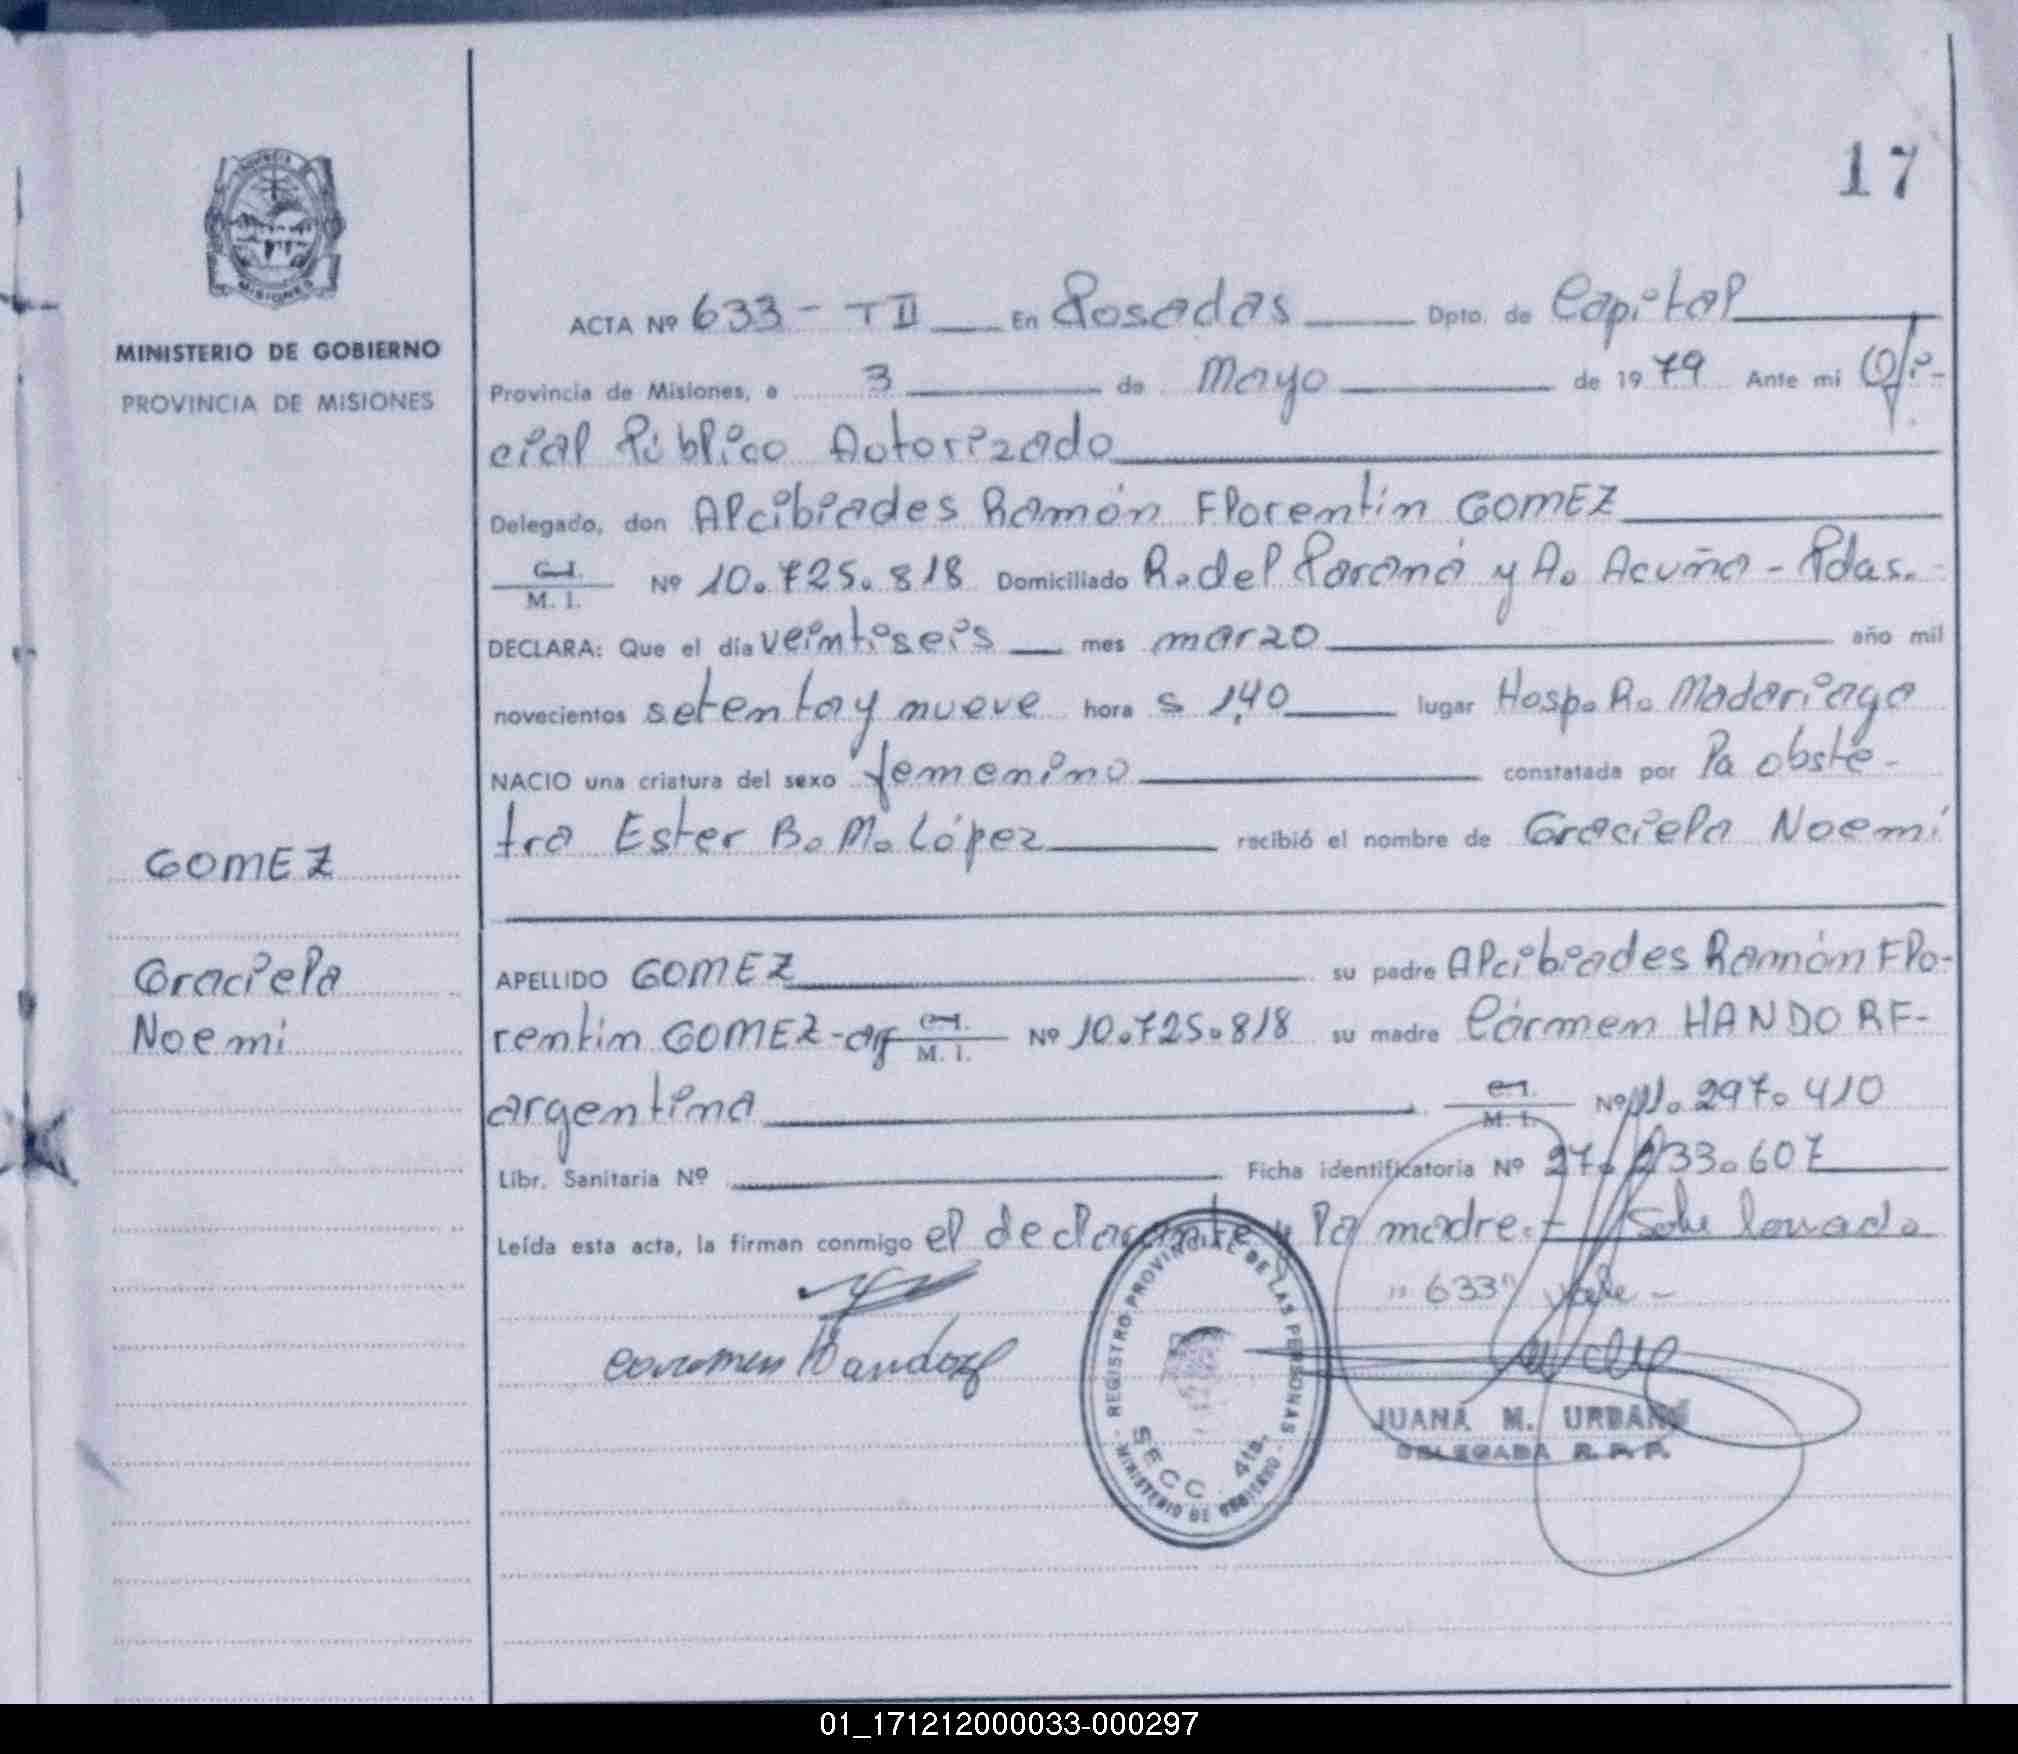 17
MINISTERIO DE GOBIERNO
PROVINCIA DE MISIONES
MISIONES
ACTA Nº 633 - T II En Posadas Dpto. de Capital
Provincia de Misiones, a 3 de Mayo de 1979 Ante mi Ofi-
cial Público Autorizado
Delegado, don Alcibiades Ramón Florentin GOMEZ
C.I. M. I. Nº 10.725.818 Domiciliado R. del Paraná y A. Acuña - Pdas.
DECLARA: Que el día veintiseis mes marzo año mil
novecientos setenta y nueve hora s 1,40 lugar Hosp. R. Madariaga
NACIO una criatura del sexo femenino constatada por la obste-
tra Ester B. M. López recibió el nombre de Graciela Noemi
GOMEZ
Graciela
Noemi
APELLIDO GOMEZ su padre Alcibiades Ramón Flo-
rentin GOMEZ - arg C.I. M. I. Nº 10.725.818 su madre Cármen HANDORF-
argentina C.I. M. I. Nº 11.297.410
Libr. Sanitaria Nº Ficha identificatoria Nº 27.233.607
Leída esta acta, la firman conmigo el declarante y la madre.- Sobre
"633" vale -
Carmen Handorf
REGISTRO PROVINCIAL DE LAS PERSONAS
SECC. 4ta.
- MINISTERIO DE GOBIERNO -
JUANA M. URBANO
DELEGADA R. P. P.
01_171212000033-000297